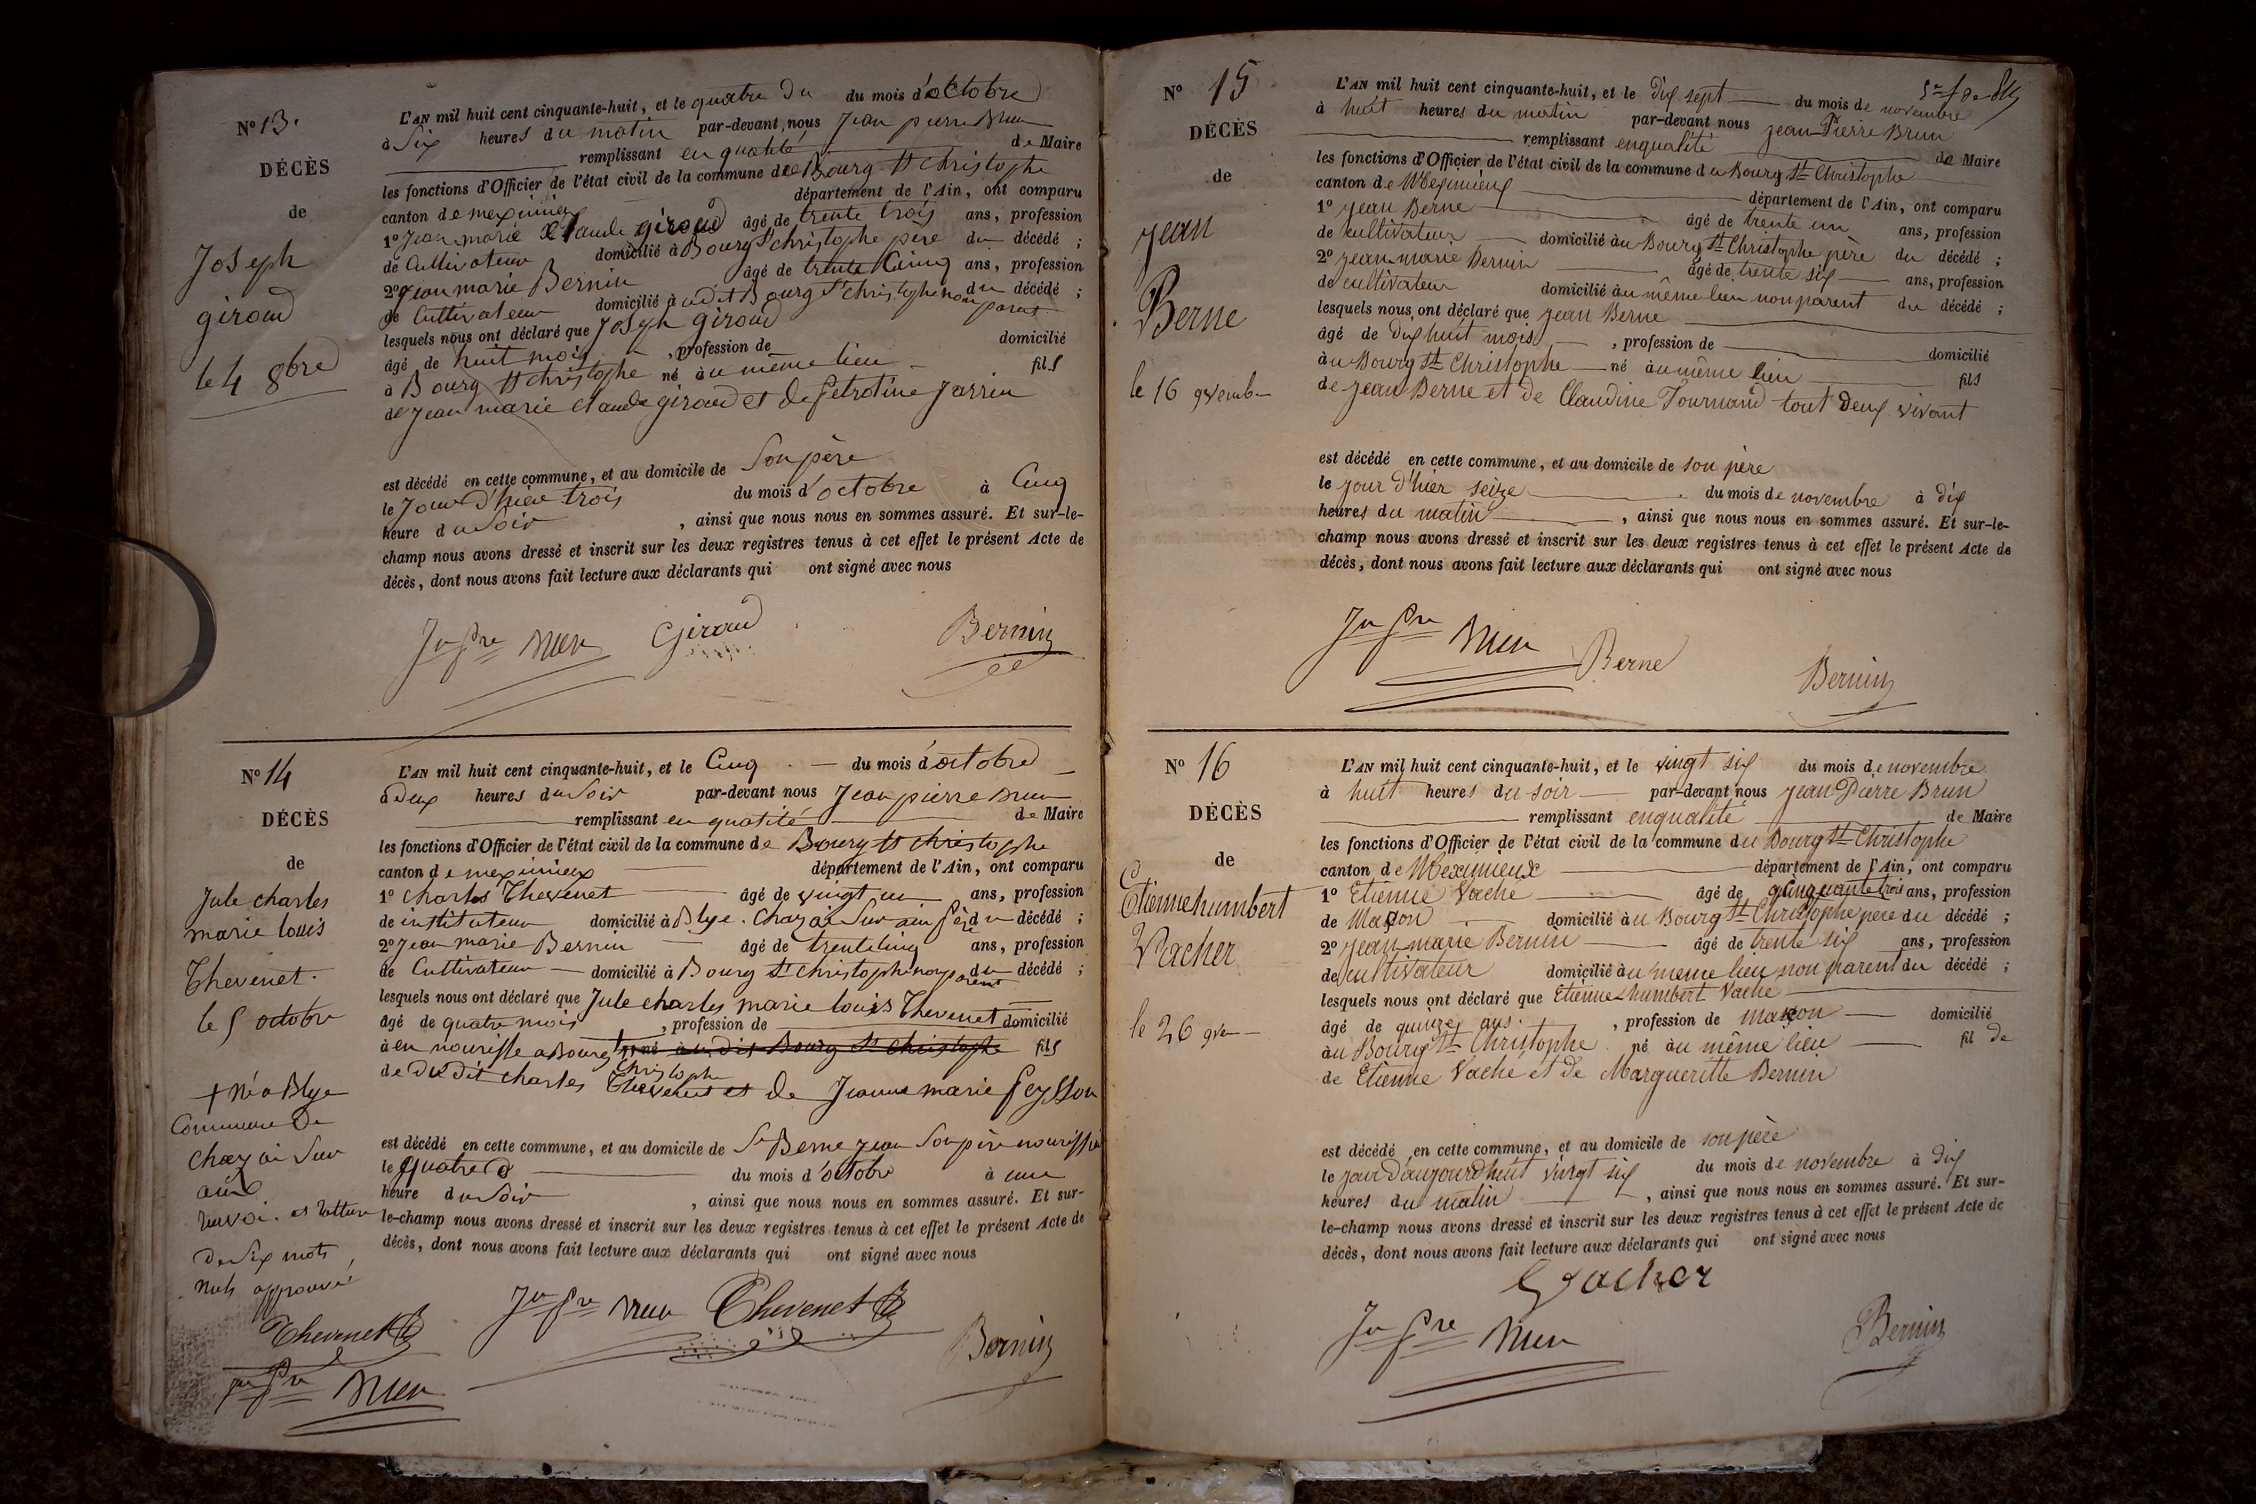 N° 13.
DÉCÈS
de
Joseph
giroud
le 4 8bre
L'AN mil huit cent cinquante-huit, et le quatre du du mois d'octobre
à Six heures du matin par-devant nous Jean pierre Brun
remplissant en qualité de Maire
les fonctions d'Officier de l'état civil de la commune de Bourg St christophe
canton de meximieux département de l'Ain, ont comparu
1° Jean marie Claude giroud âgé de trente trois ans, profession
de Cultivateur domicilié à Bourg St christophe père du décédé ;
2° Jean marie Bernin âgé de trente Cinq ans, profession
de Cultivateur domicilié à udit Bourg St christophe non parent du décédé ;
lesquels nous ont déclaré que Joseph giroud
âgé de huit mois , profession de domicilié
à Bourg St christophe né au même lieu fils
de Jean marie Claude giroud et de Petrotine Jarrin
est décédé en cette commune, et au domicile de Son père
le Jour d'hier trois du mois d'octobre à Cinq
heure du Soir , ainsi que nous nous en sommes assuré. Et sur-le-
champ nous avons dressé et inscrit sur les deux registres tenus à cet effet le présent Acte de
décès, dont nous avons fait lecture aux déclarants qui ont signé avec nous
Jn Pre Brun Giroud Bernin
N° 14
DÉCÈS
de
Jule charles
marie louis
Thevenet.
le 5 octobre
+ Né a Blye
Commune de
Chazai Sur
ain
renvoi. et rature
de Six mots
nuls approuvé
Thevenet
Jn Pre Brun
L'AN mil huit cent cinquante-huit, et le Cinq du mois d'octobre
à deux heures du Soir par-devant nous Jean pierre Brun
remplissant en qualité de Maire
les fonctions d'Officier de l'état civil de la commune de Bourg St christophe
canton de meximieux département de l'Ain, ont comparu
1° Charles Thevenet âgé de vingt un ans, profession
de instituteur domicilié à Blye. Chazai Sur ain père du décédé ;
2° Jean marie Bernin âgé de trente Cinq ans, profession
de Cultivateur domicilié à Bourg St christophe non parent du décédé ;
lesquels nous ont déclaré que Jule charles marie louis Thevenet
âgé de quatre mois , profession de domicilié
à en nourisse a Bourg St Christophe + né au dit Bourg St christophe fils
de du dit charles Thevenet et de Jeanne marie Peysson
est décédé en cette commune, et au domicile de Sr Berne Jean Son père nourissie
le quatre du mois d'octobre à une
heure du Soir , ainsi que nous nous en sommes assuré. Et sur-
le-champ nous avons dressé et inscrit sur les deux registres tenus à cet effet le présent Acte de
décès, dont nous avons fait lecture aux déclarants qui ont signé avec nous
Jn Pre Brun Thevenet Bernin
N° 15
DÉCÈS
de
Jean
Berne
le 16 9vemb
L'AN mil huit cent cinquante-huit, et le dix sept du mois de novembre
à huit heures du matin par-devant nous Jean Pierre Brun
remplissant enqualité de Maire
les fonctions d'Officier de l'état civil de la commune du Bourg St Christophe
canton de Meximieux département de l'Ain, ont comparu
1° Jean Berne âgé de trente un ans, profession
de cultivateur domicilié au Bourg St Christophe père du décédé ;
2° Jean-marie Bernin âgé de trente six ans, profession
de cultivateur domicilié au même lieu non parent du décédé ;
lesquels nous ont déclaré que Jean Berne
âgé de dix huit mois , profession de domicilié
au Bourg St Christophe né au même lieu fils
de Jean Berne et de Claudine Tournand tout deux vivant
est décédé en cette commune, et au domicile de son père
le jour d'hier seize du mois de novembre à dix
heures du matin , ainsi que nous nous en sommes assuré. Et sur-le-
champ nous avons dressé et inscrit sur les deux registres tenus à cet effet le présent Acte de
décès, dont nous avons fait lecture aux déclarants qui ont signé avec nous
Jn Pre Brun Berne Bernin
N° 16
DÉCÈS
de
Etienne humbert
Vacher
le 26 9vre
L'AN mil huit cent cinquante-huit, et le vingt six du mois de novembre
à huit heures du soir par-devant nous Jean Pierre Brun
remplissant enqualité de Maire
les fonctions d'Officier de l'état civil de la commune du Bourg St Christophe
canton de Meximieux département de l'Ain, ont comparu
1° Etienne Vache âgé de cinquante trois ans, profession
de Maçon domicilié au Bourg St Christophe pere du décédé ;
2° Jean marie Bernin âgé de trente six ans, profession
de cultivateur domicilié au meme lieu non parent du décédé ;
lesquels nous ont déclaré que Etienne humbert Vache
âgé de quinze ans. , profession de maçon domicilié
au Bourg St Christophe né au même lieu fil de
de Etienne Vaché et de Margueritte Bernin
est décédé en cette commune, et au domicile de son père
le jour d'aujourd'huit vingt six du mois de novembre à dix
heures du matin , ainsi que nous nous en sommes assuré. Et sur-
le-champ nous avons dressé et inscrit sur les deux registres tenus à cet effet le présent Acte de
décès, dont nous avons fait lecture aux déclarants qui ont signé avec nous
Vacher
Jn Pre Brun Bernin